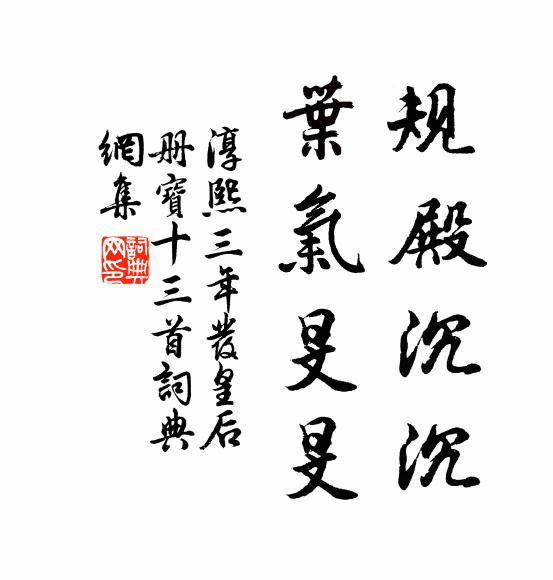 規殿沉沉
葉氣旻旻
淳熙三年發皇后
册寶十三首詞典
網集
詞典
网印